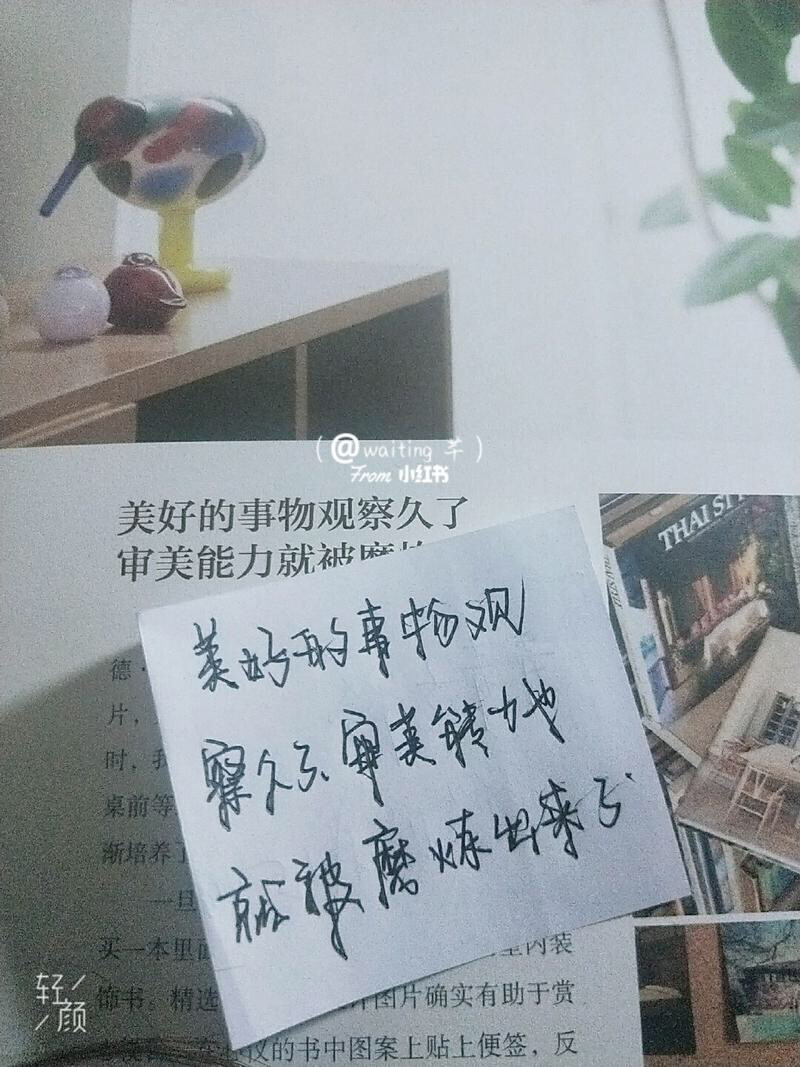 (@waiting 芊)
From 小红书
美好的事物观察久了
审美能力就被磨
THAI ST
美好的事物观
察久了、审美能力也
就被磨炼出来了
德·
片，
时，我
桌前等
渐培养了
一旦
买一本里面
室内装
饰书。精选
计图片确实有助于赏
的书中图案上贴上便签，反
轻颜